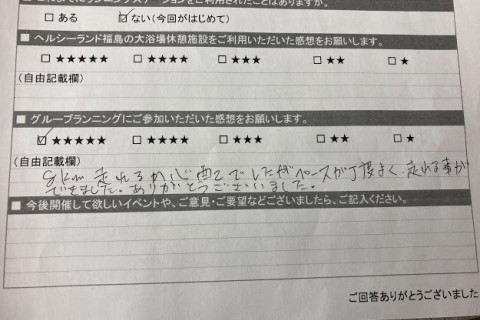 これまでにランニングステーションをご利用されたことはありますか。
□ ある ☑ ない(今回がはじめて)
■ ヘルシーランド福島の大浴場休憩施設をご利用いただいた感想をお願いします。
□ ★★★★★ □ ★★★★ □ ★★★ □ ★★ □ ★
(自由記載欄)
■ グループランニングにご参加いただいた感想をお願いします。
☑ ★★★★★ □ ★★★★ □ ★★★ □ ★★ □ ★
(自由記載欄)
8km 走れるか心配でしたがペースが丁度よく、走れる事が
できました。ありがとうございました。
■ 今後開催して欲しいイベントや、ご意見・ご要望などございましたら、ご記入ください。
ご回答ありがとうございました